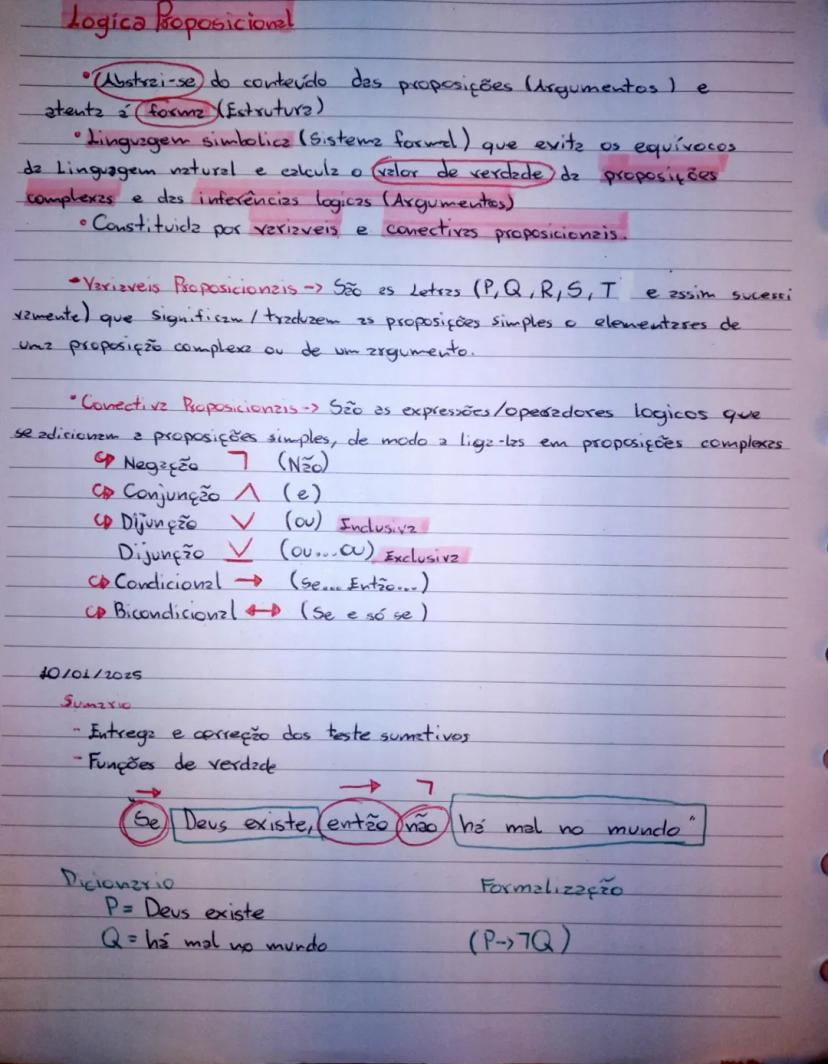 Logica Proposicional
• Abstrai-se do conteúdo das proposições (Argumentos) e
atenta á forma (Estrutura)
• Linguagem simbolica (Sistema formal) que evita os equívocos
da Linguagem natural e calcula o valor de verdade da proposições
complexas e das inferências logicas (Argumentos)
• Constituida por variaveis e conectivas proposicionais.
• Variaveis Proposicionais -> São as Letras (P, Q, R, S, T e assim sucessi
vamente) que significam / traduzem as proposições simples o elementares de
uma proposição complexa ou de um argumento.
• Conectiva Proposicionais -> São as expressões/operadores logicos que
se adicionam a proposições simples, de modo a liga-las em proposições complexas
↪ Negação ¬ (Não)
↪ Conjunção ∧ (e)
↪ Dijunção ∨ (ou) Inclusiva
Dijunção ⊻ (ou...ou) Exclusiva
↪ Condicional → (Se... Então...)
↪ Bicondicional ↔ (Se e só se)
10/01/2025
Sumario
- Entrega e correção dos teste sumativos
- Funções de verdade
→ → ¬
"Se Deus existe, então não há mal no mundo"
Dicionario Formalização
P = Deus existe
Q = há mal no mundo (P->¬Q)